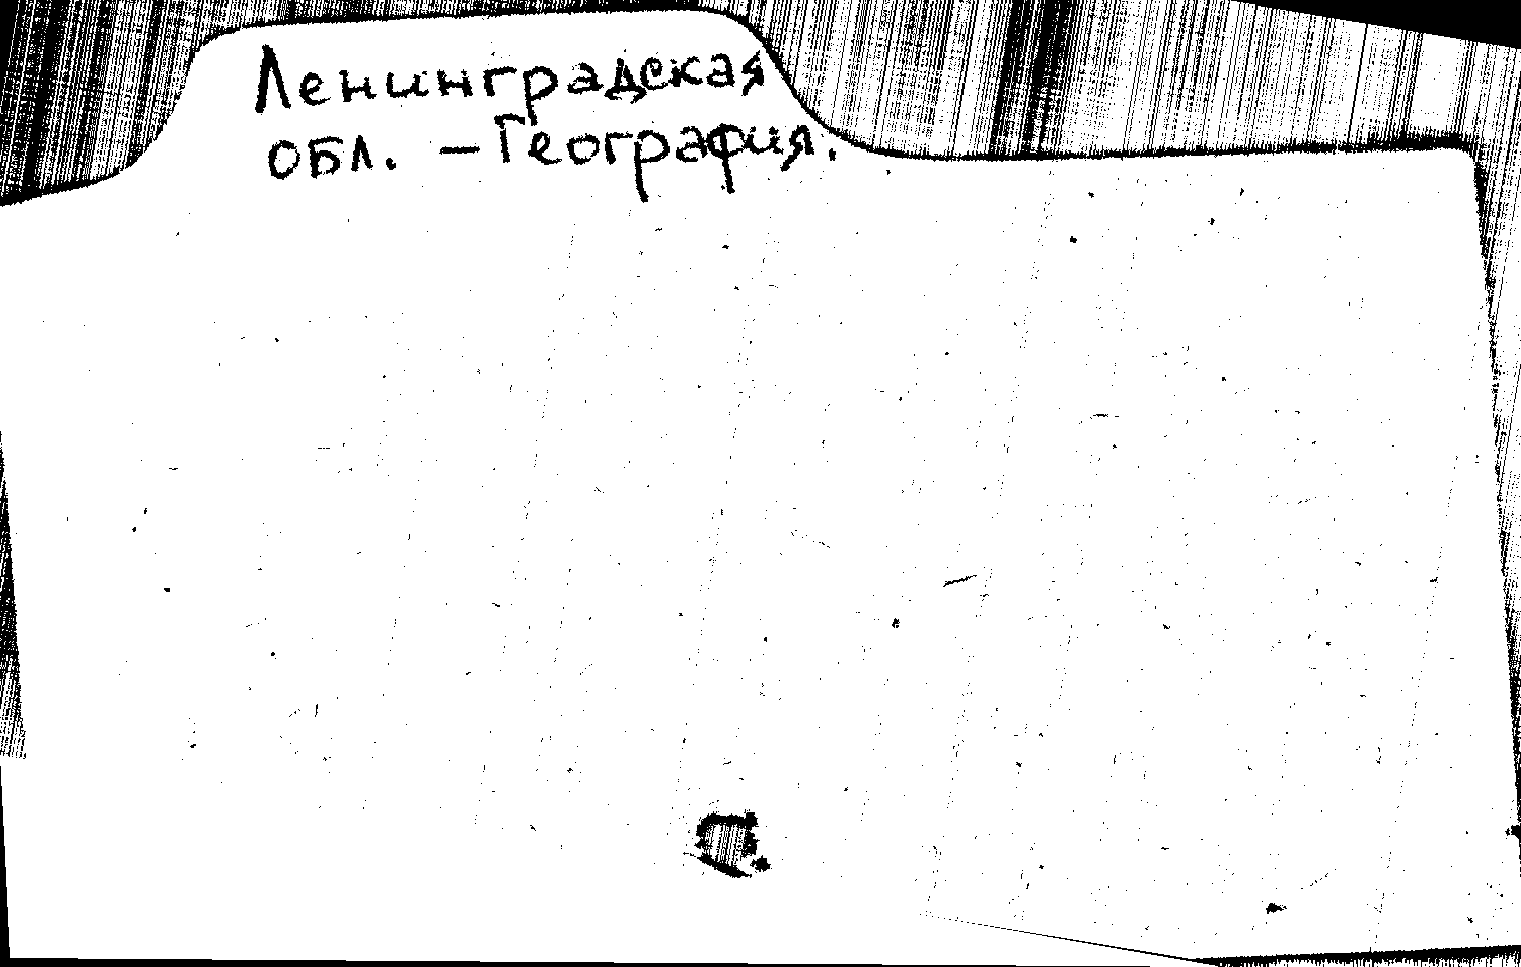 Ленинградская
обл. – География.